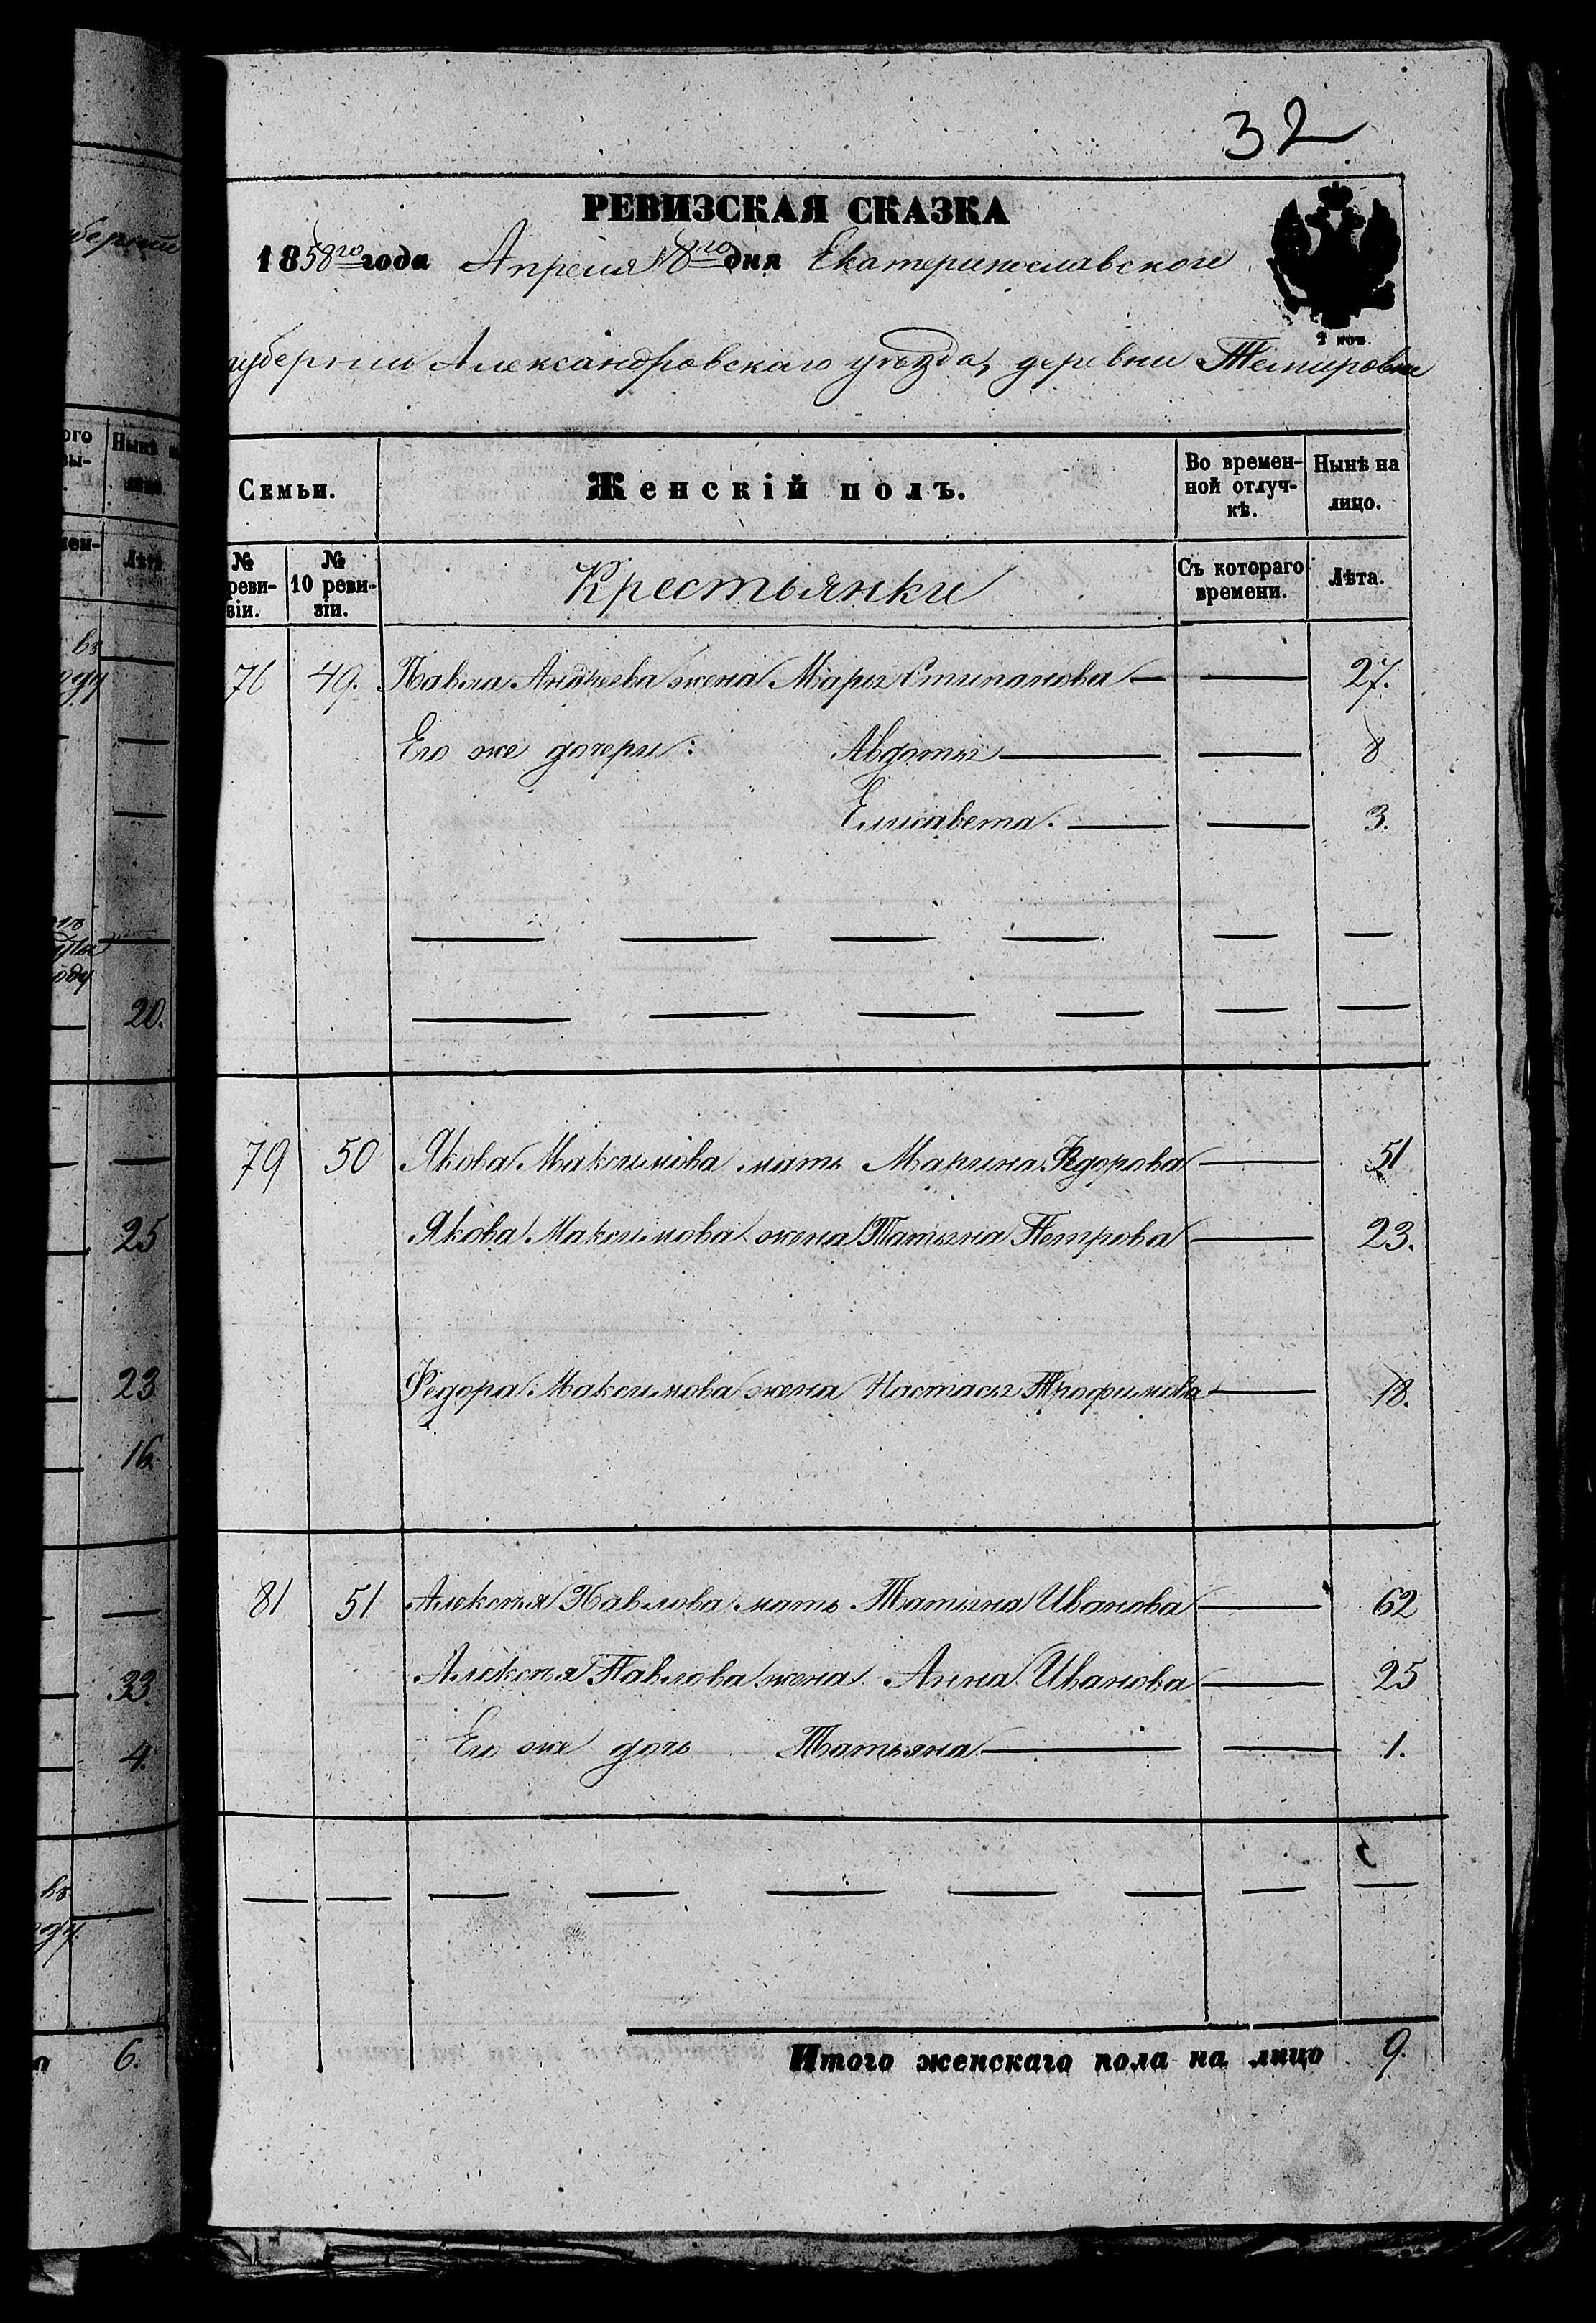 32
РЕВИЗСКАЯ СКАЗКА
1858го года Апреля 18го дня Екатеринославской
2 коп.
губернии Александровскаго уѣзда, деревни Темировки
Семьи.
Женскій полъ.
Во времен-
ной отлуч-
кѣ.
Нынѣ на
лицо.
№
реви-
зіи.
№
10 реви-
зіи.
Крестьянки
Съ котораго
времени.
Лѣта.
76 49. Павла Андреева жена Марья Степанова — — 27.
Его же дочери: Авдотья — — 8
Елисавета. — — 3.
79 50 Якова Максимова мать Марина Федорова — 51
Якова Максимова жена Татьяна Петрова — 23.
Федора Максимова жена Настасья Трофимова — 18.
81 51 Алексѣя Павлова мать Татьяна Иванова — 62
Алексѣя Павлова жена Анна Иванова — 25
Его же дочь Татьяна — — 1.
Итого женскаго пола на лицо 9.
берніи
ого
вы-
Нынѣ на
лицо.
мен-
Лѣта.
въ
оду
оду
20.
25
23
16.
33
4.
въ
оду.
6.